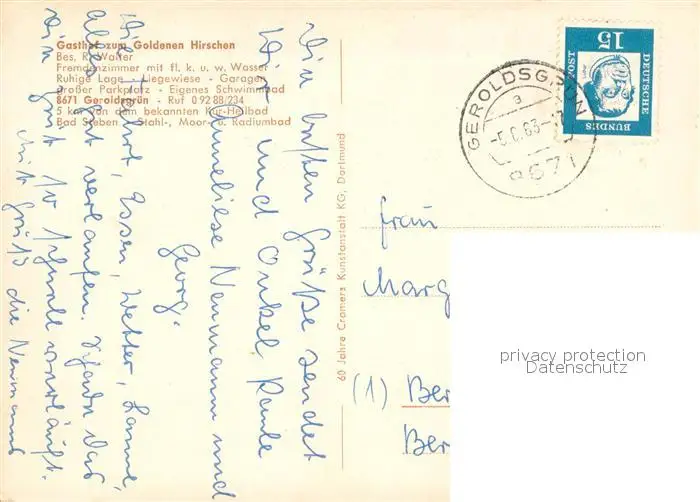 Gasthof zum Goldenen Hirschen
Bes. R. Walter
Fremdenzimmer mit fl. k. u. w. Wasser
Ruhige Lage - Liegewiese - Garagen
Großer Parkplatz - Eigenes Schwimmbad
8671 Geroldsgrün - Ruf 0 92 88/234
5 km von dem bekannten Kur-Heilbad
Bad Steben - Stahl-, Moor- u. Radiumbad
Die besten Grüße sendet
Dir und Onkel Paule
Anneliese Neumann und
Georg.
Die Fahrt, Essen, Wetter, Laune,
alles gut verlaufen. Schade das
die Zeit so schnell verläuft.
Mit Gruß die Neumanns
60 Jahre Cramers Kunstanstalt KG, Dortmund
GEROLDSGRÜN
a
-5.6.63-
8671
15
DEUTSCHE
BUNDES
POST
Frau
Marg
(1) Ber
Ber
privacy protection
Datenschutz